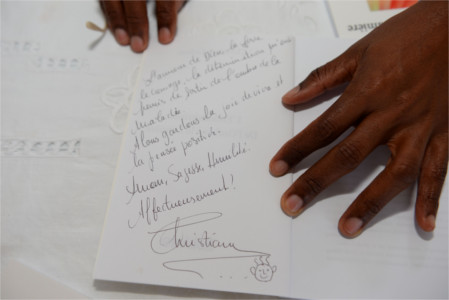 de la force
le courage, la détermination qui
permis de sortir de l'ombre de la
maladie
Alors gardons la joie de vivre et
la pensée positive.
Amour, Sagesse, Humilité
Affectueusement!
Christian